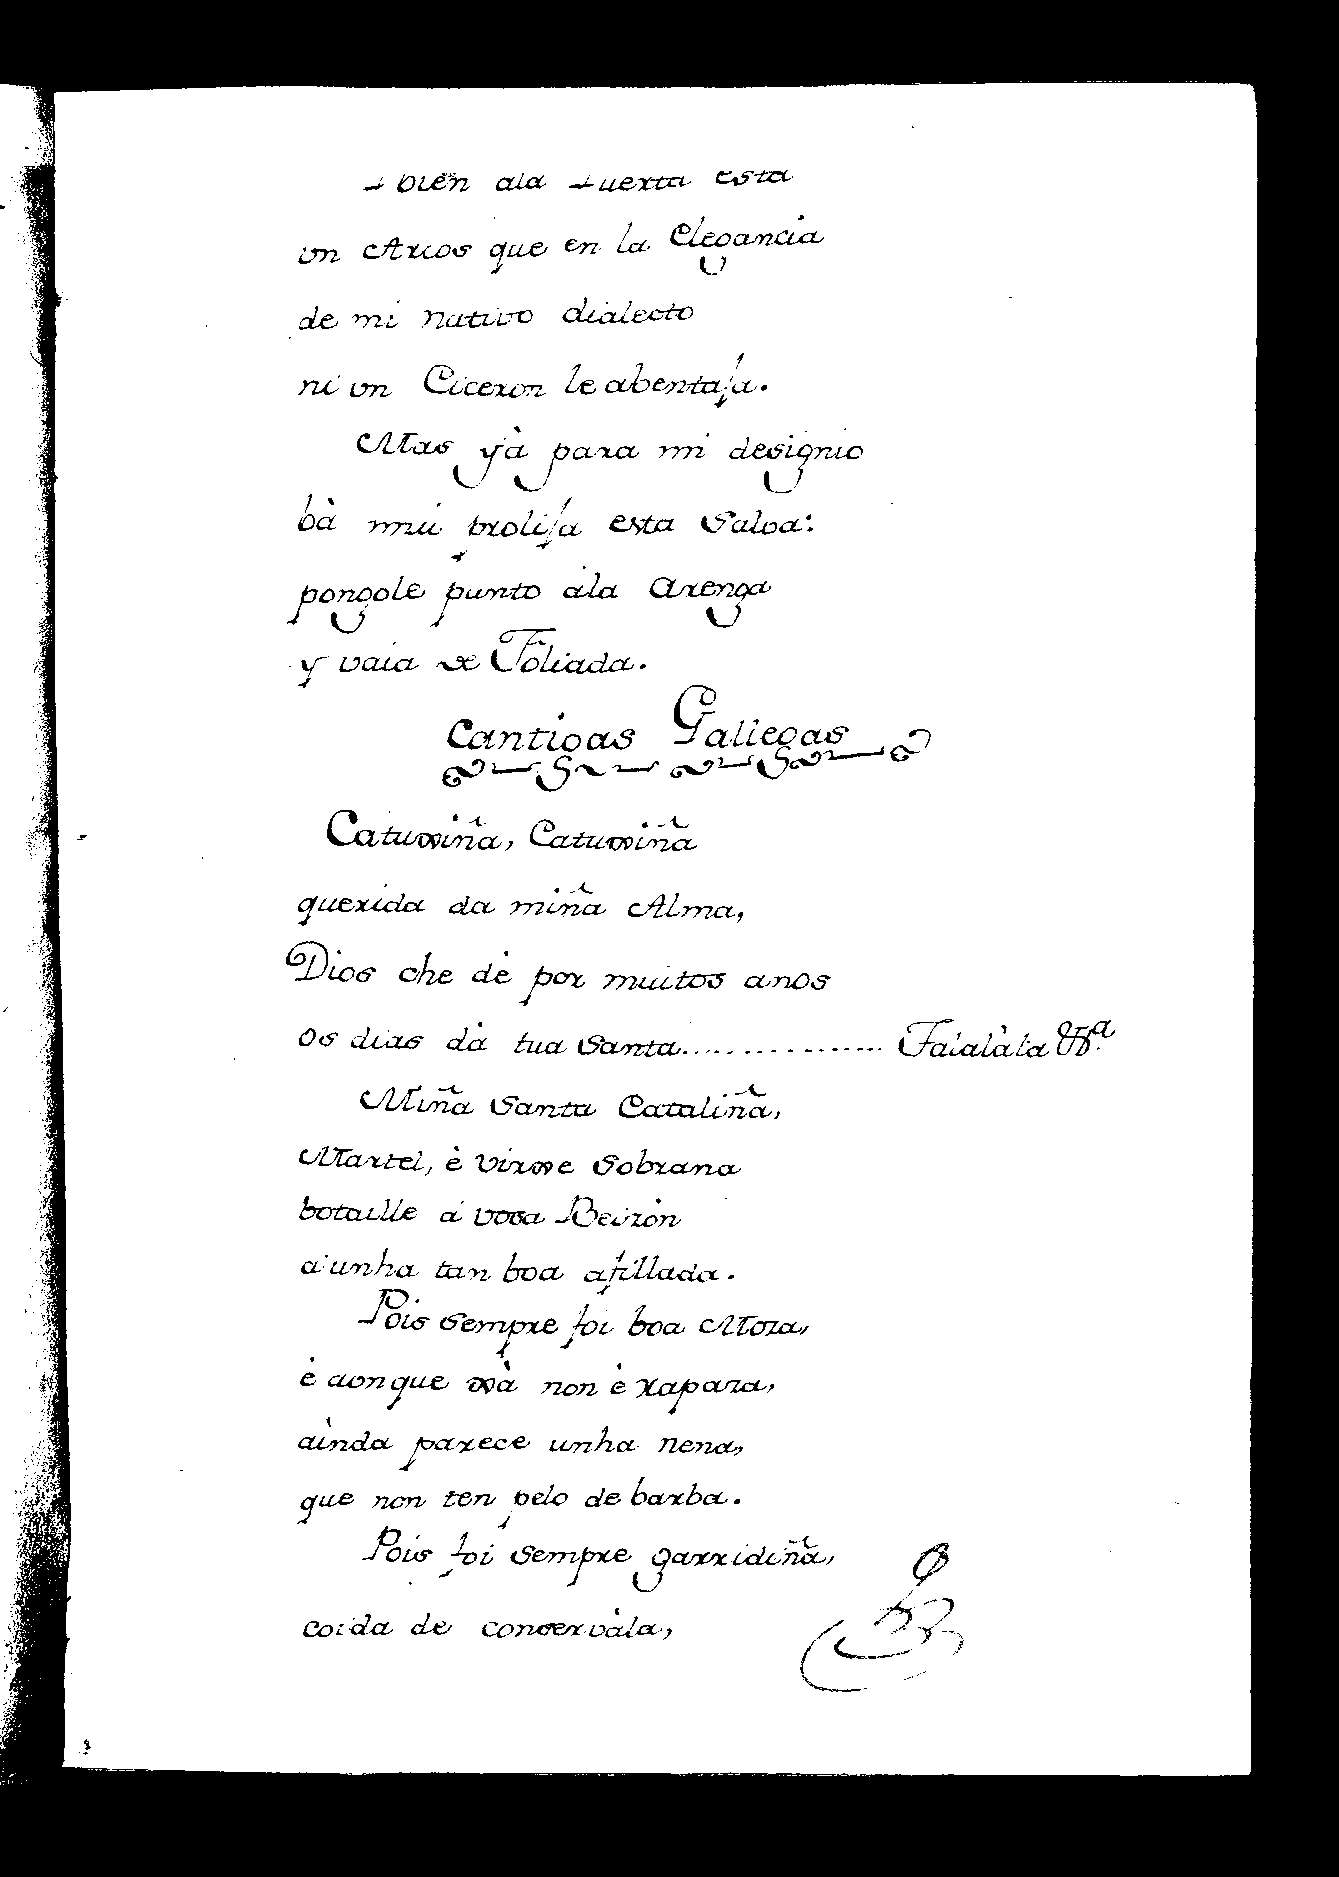 bien ala Puerta esta
vn Arcos que en la Elegancia
de mi nativo dialecto
ni vn Ciceron le abentaja.
Mas yà para mi designio
bà mui prolija esta Salva:
pongole punto ala Arenga
y vaia de Foliada.
Cantigas Gallegas
Catuxiña, Catuxiña
querida da miña Alma,
Dios che dè por muitos anos
os dias dà tua Santa.................. Falalàla &ª.
Miña Santa Cataliña,
Martel, è virxe Sobrana
botaille á vosa Beizòn
a unha tan boa afillada.
Pois sempre foi boa Moza,
è aonque xà non è rapaza,
aìnda parece unha nena,
que non ten pelo de barba.
Pois foi sempre garridiña,
coida de conservàla,